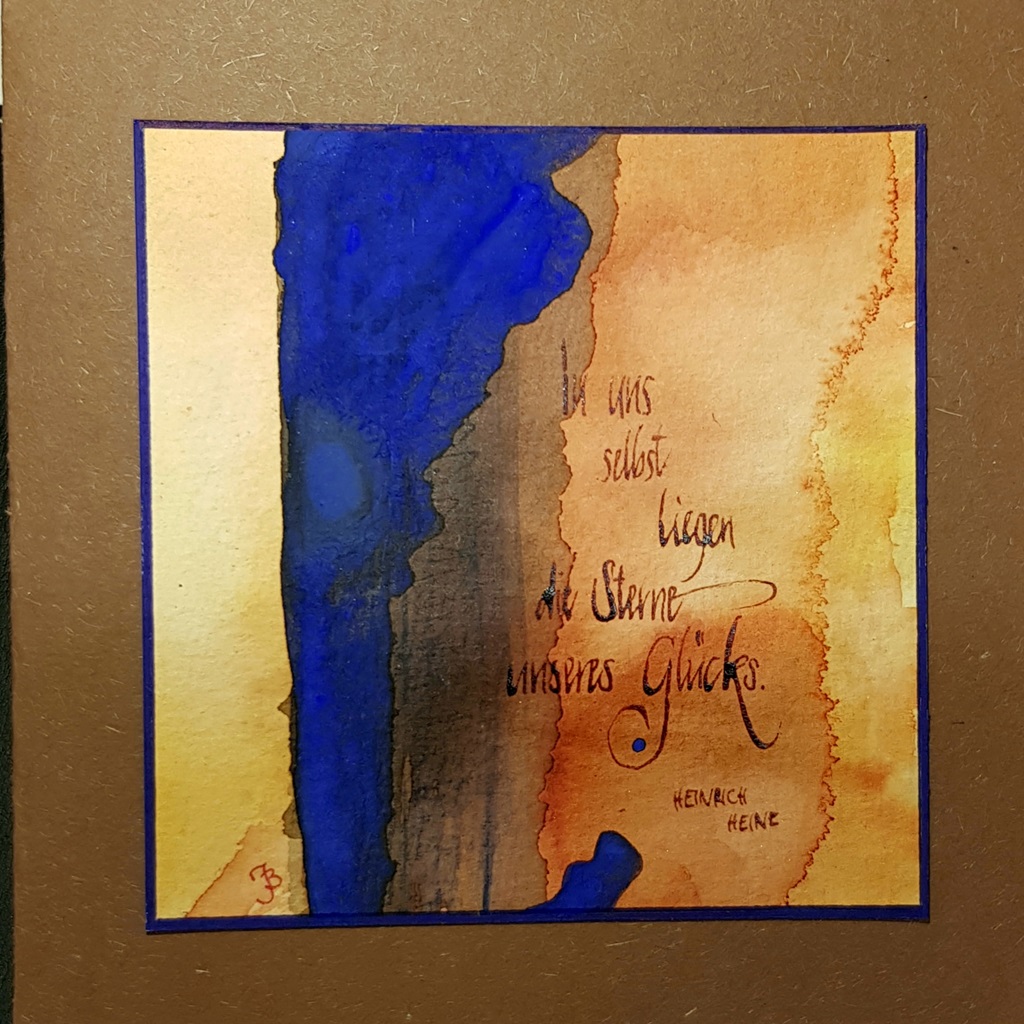 In uns
selbst
liegen
die Sterne
unseres Glücks.
HEINRICH
HEINE
JB